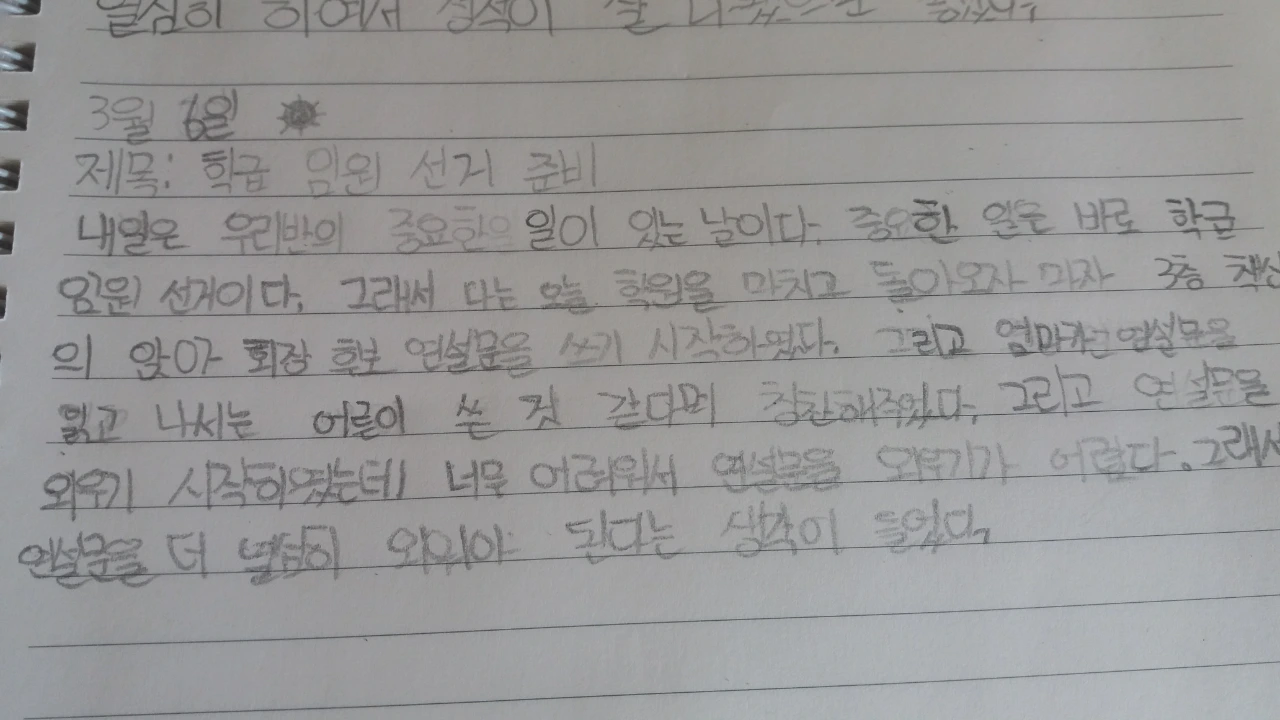 열심히 하여서 성적이 잘 나왔으면
3월 6일
제목: 학급 임원 선거 준비
내일은 우리반의 중요한 일이 있는 날이다. 중요한 일은 바로 학급
임원 선거이다. 그래서 나는 오늘 학원을 마치고 돌아오자 마자 3층 책상
의 앉아 회장 후보 연설문을 쓰기 시작하였다. 그리고 엄마가 연설문을
읽고 나시는 어른이 쓴 것 같다며 칭찬해주었다. 그리고 연설문을
외우기 시작하였는데 너무 어려워서 연설문을 외우기가 어렵다. 그래서
연설문을 더 열심히 외워야 된다는 생각이 들었다.